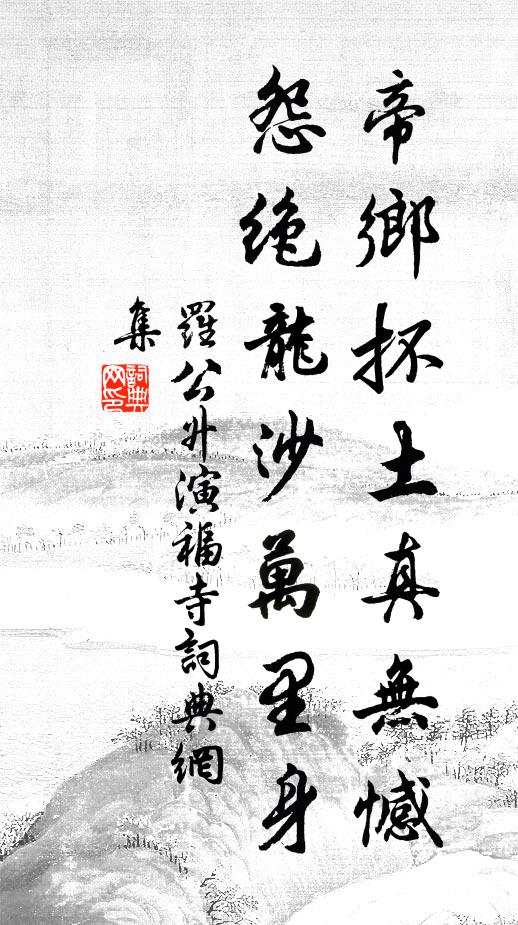 帝鄉抔土真無憾
怨絶龍沙萬里身
羅公升演福寺詞典網
集
詞典
网印